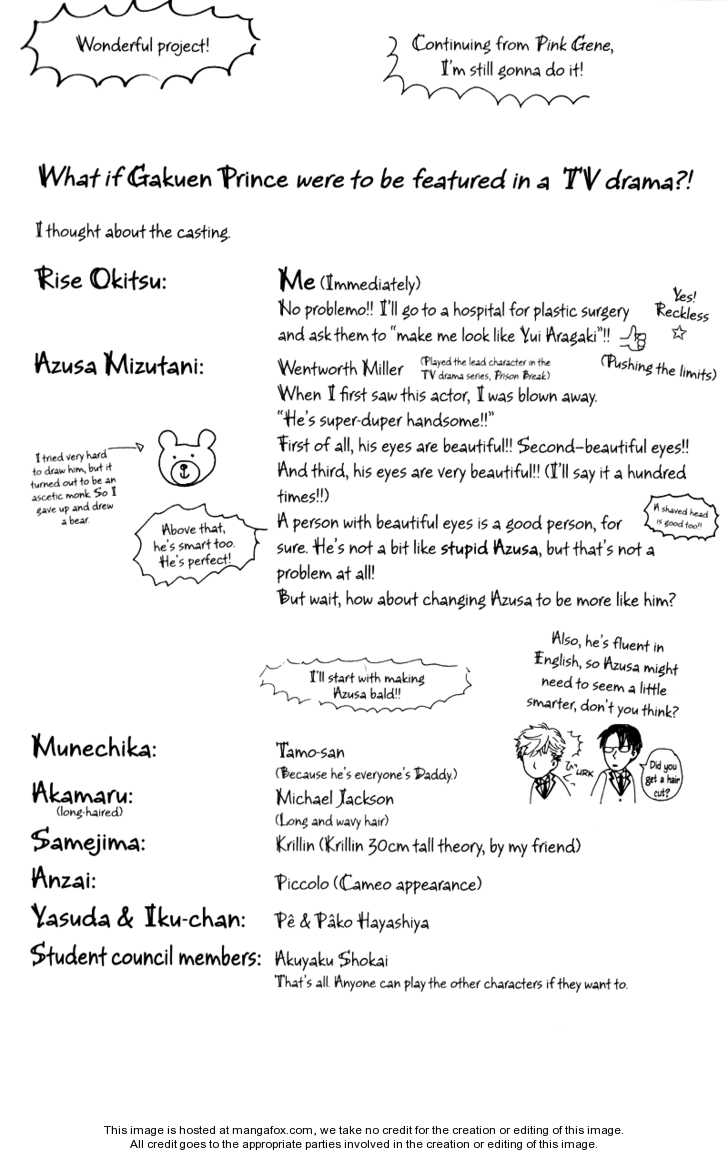 Wonderful project!
Continuing from Pink Gene,
I'm still gonna do it!
What if Gakuen Prince were to be featured in a TV drama?!
I thought about the casting.
Rise Okitsu:
Me (Immediately)
No problemo!! I'll go to a hospital for plastic surgery
and ask them to "make me look like Yui Aragaki"!!
Yes!
Reckless
(Pushing the limits)
Azusa Mizutani:
Wentworth Miller
(Played the lead character in the
TV drama series, Prison Break)
When I first saw this actor, I was blown away.
"He's super-duper handsome!!"
First of all, his eyes are beautiful!! Second-beautiful eyes!!
And third, his eyes are very beautiful!! (I'll say it a hundred
times!!)
I tried very hard
to draw him, but it
turned out to be an
ascetic monk. So I
gave up and drew
a bear.
Above that,
he's smart too.
He's perfect!
A shaved head
is good too!!
A person with beautiful eyes is a good person, for
sure. He's not a bit like stupid Azusa, but that's not a
problem at all!
But wait, how about changing Azusa to be more like him?
I'll start with making
Azusa bald!!
Also, he's fluent in
English, so Azusa might
need to seem a little
smarter, don't you think?
URK
Did you
get a hair
cut?
Munechika:
Tamo-san
(Because he's everyone's Daddy.)
Akamaru:
(long-haired)
Michael Jackson
(Long and wavy hair)
Samejima:
Krillin (Krillin 30cm tall theory, by my friend)
Anzai:
Piccolo (Cameo appearance)
Yasuda & Iku-chan:
Pê & Pâko Hayashiya
Student council members:
Akuyaku Shokai
That's all. Anyone can play the other characters if they want to.
This image is hosted at mangafox.com, we take no credit for the creation or editing of this image.
All credit goes to the appropriate parties involved in the creation or editing of this image.